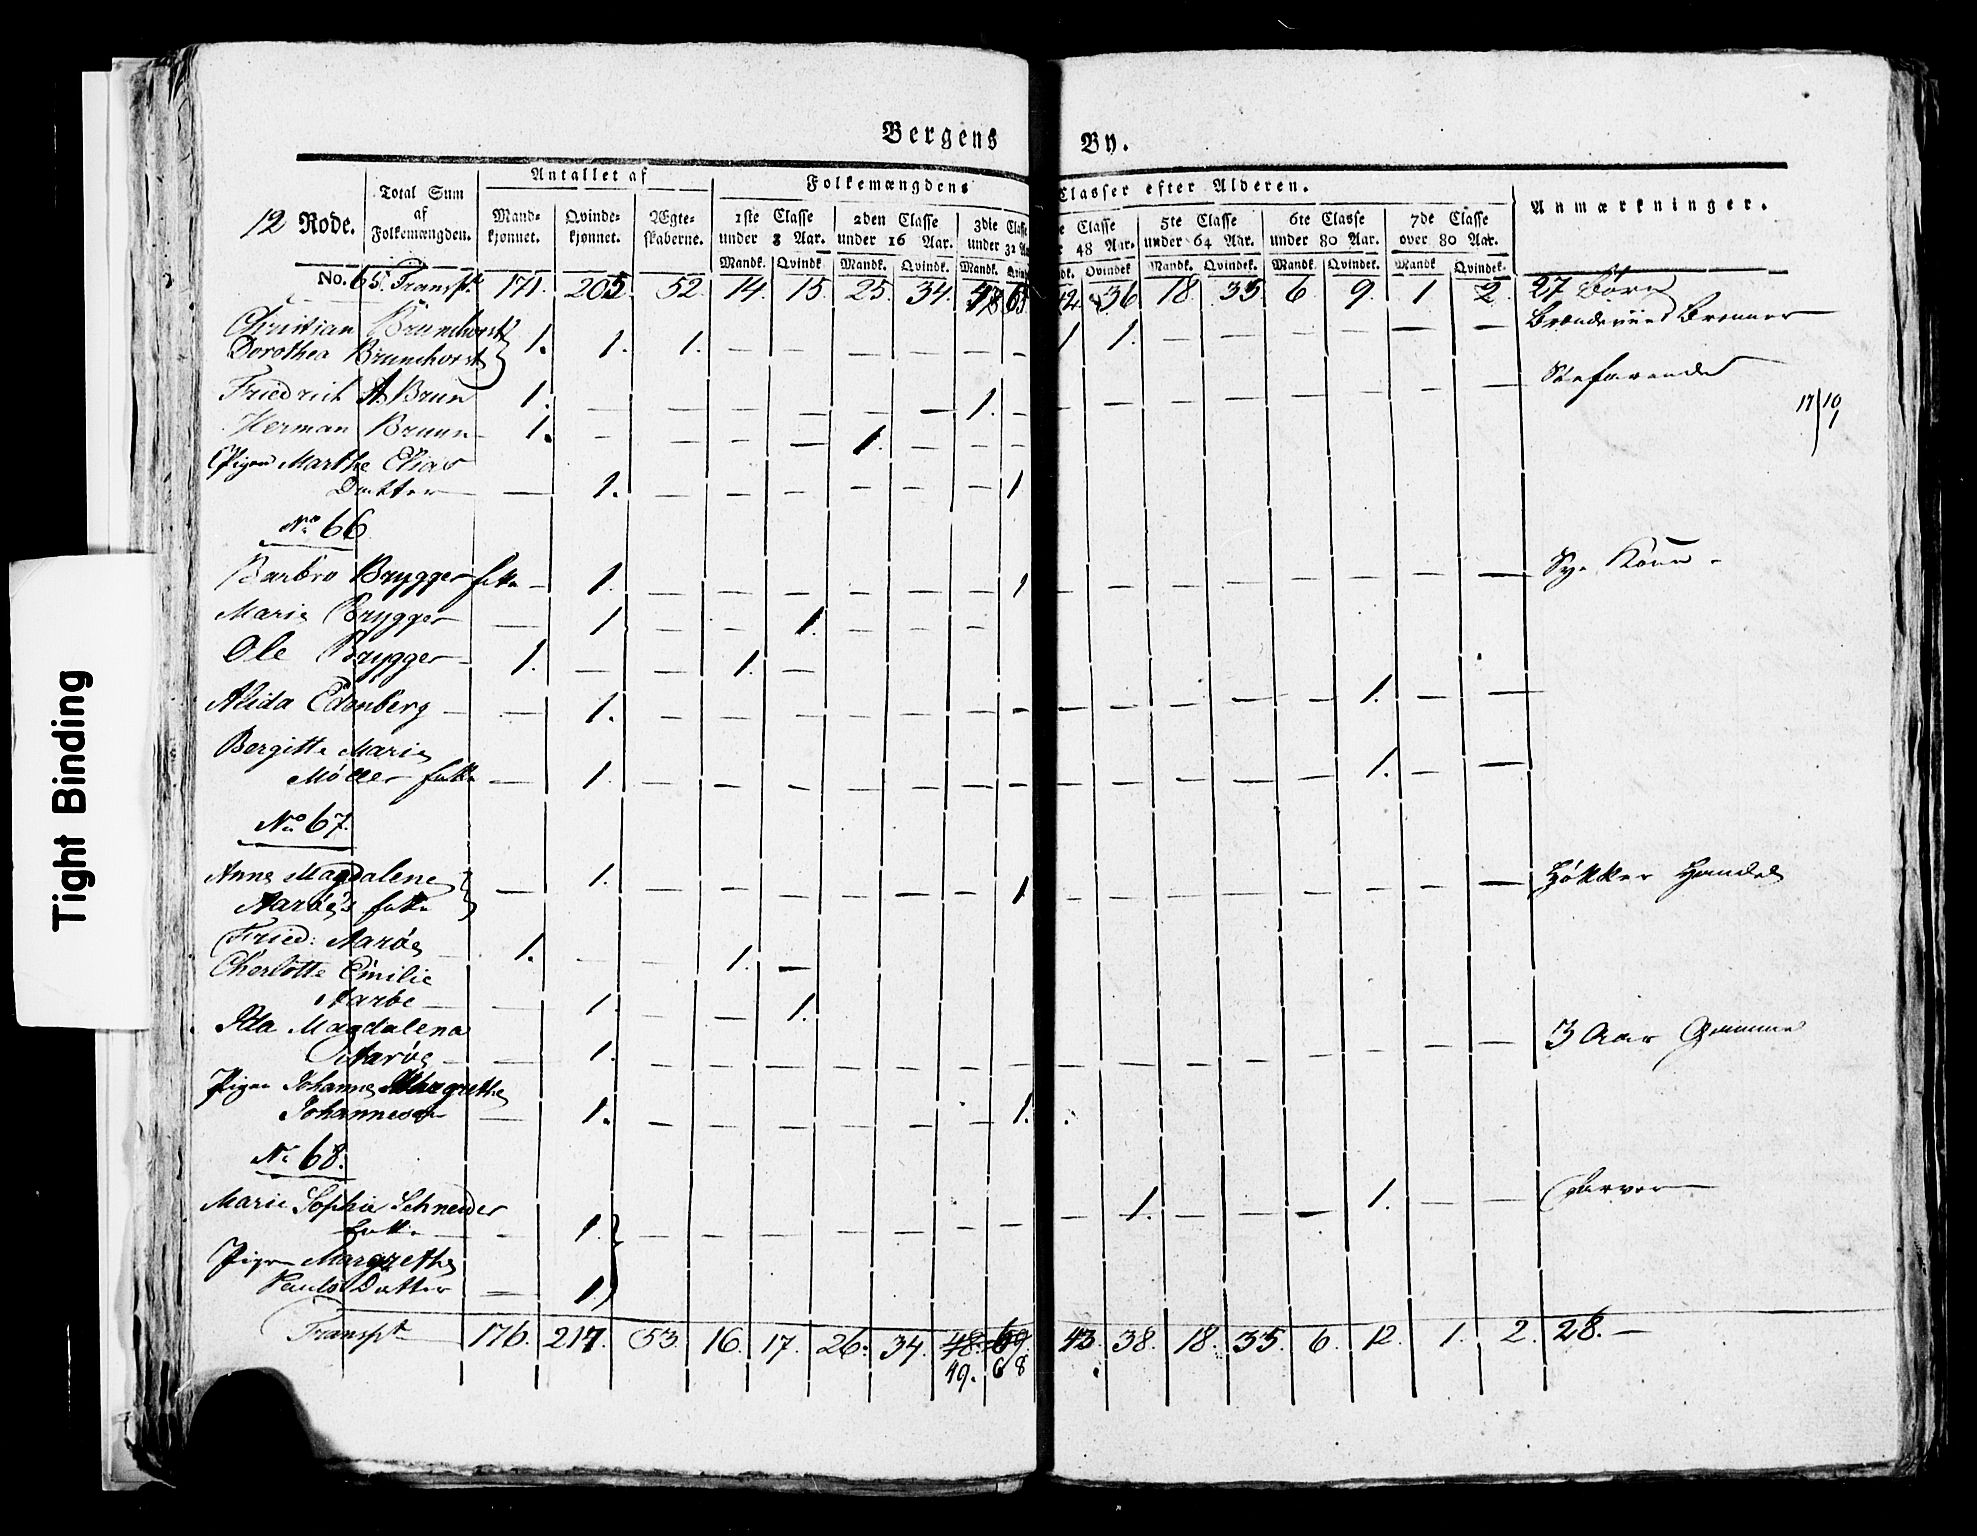 Bergens By.
12 Rode.
Total Sum af Folkemængden.
Antallet af
Mandkjønnet. Qvindekjønnet. Ægteskaberne.
Folkemængdens Classer efter Alderen.
1ste Classe under 8 Aar. 2den Classe under 16 Aar. 3die Classe under 32 Aar. 48 Aar. 5te Classe under 64 Aar. 6te Classe under 80 Aar. 7de Classe over 80 Aar.
Mandk. Qvindk. Mandk. Qvindk. Mandk. Qvindk. Mandk. Qvindek. Mandk. Qvindek. Mandk. Qvindek.
Anmærkninger.
No. 65. Transpt. 171. 205. 52. 14. 15. 25. 34. 48 65 42. 36 18. 35 6 9. 1 2. 27 Børn
Christian Brunchorst
Dorothea Brunchorst 1. 1. 1. — — — — — — 1 1. — — — — Brændeviins Brenner
Friedrich A. Brun 1. — — — — — — 1. — — — — — Søefarende
Herman Bruun 1. — — — — 1. — — —
17/10
Pigen Marthe Elias
Datter — 1. — — — — — — 1
No 66
Barbro Brygger — 1. — — — — — — 1 — — — — — — — —
Marie Brygger — 1 — — 1. — — —
Ole Brygger 1. — — 1. —
Alida Edenberg — 1. — — — — — — — — — — — — 1. — —
Bergitte Marie
Møller — 1. — — — — — — — — — — — — 1. — —
No 67.
Anne Magdalene — 1. — — — — — — 1 — — — — — — — — Høkker Handel
Aarøes
Fried: Aarøe 1. — — 1. —
Charlotte Emilie
Aarøe — 1. — — 1.
Ida Magdalena
Aarøe — 1. — — — — — — — — — — — — — — — 3 Aar Gammel
Pigen Johanne Margrethe
Johannesd — 1. — — — — — — 1.
No 68.
Marie Sophie Schneider
— — 1. — — — — — — — — 1. — — — 1. — — Farver
Pigen Margrethe
Pauls Datter — 1.
Transpt 176. 217. 53. 16. 17. 26. 34. 48. 69. 43. 38. 18. 35. 6. 12. 1. 2. 28. —
49. 68
Tight Binding